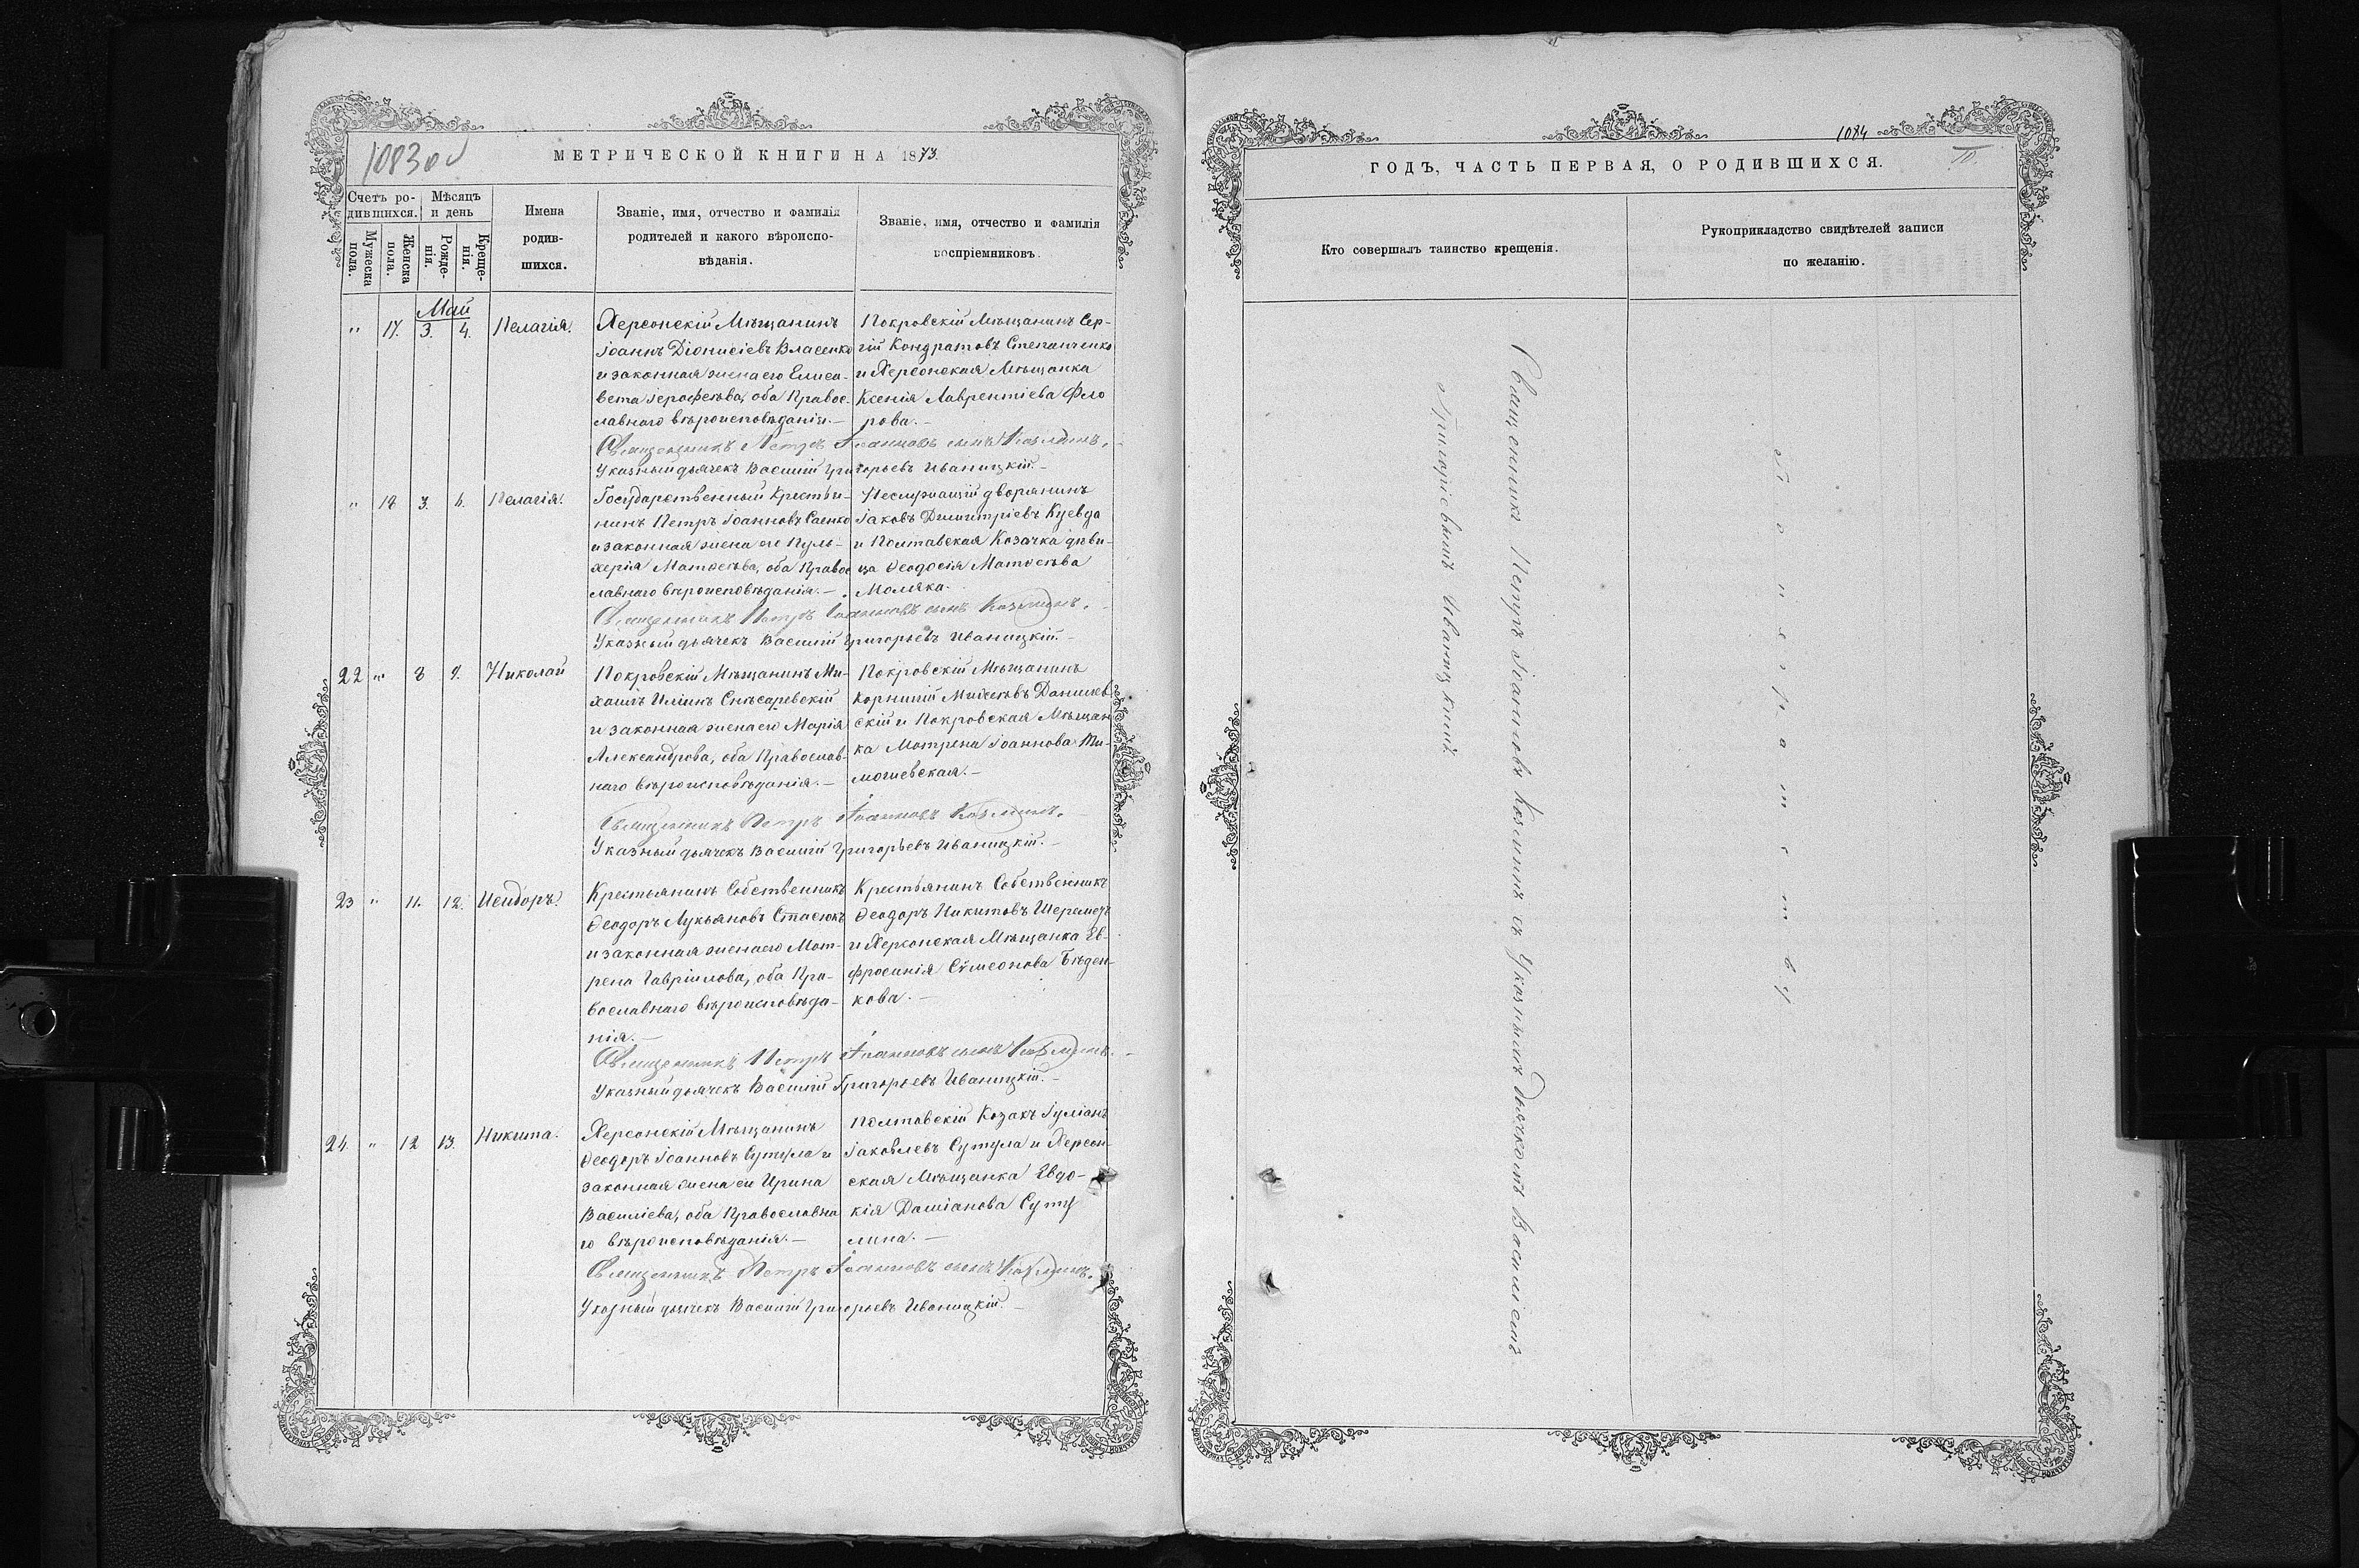 1083 об
МЕТРИЧЕСКОЙ КНИГИ НА 1873.
Счетъ ро-
дившихся.
Мѣсяцъ
и день
Мужеска
пола.
Женска
пола.
Рожде-
нія.
Креще-
нія.
Имена
родив-
шихся.
Званіе, имя, отчество и фамилія
родителей и какого вѣроиспо-
вѣданія.
Званіе, имя, отчество и фамилія
воспріемниковъ.
Май
" 17. 3. 4. Пелагія.
Херсонскій Мѣщанинъ
Іоаннъ Діонисіевъ Власенко
и законная жена его Елиса-
вета Іерофеѣва, оба Правос-
лавнаго вѣроисповѣданія.-
Покровскій Мѣщанинъ Сер-
гій Кондратовъ Степанченко
и Херсонская Мѣщанка
Ксенія Лаврентіева Фло
рова.-
Священникъ Петръ Іоанновъ сынъ Козминъ.
Указный дьячекъ Василій Григорьевъ Иваницкій.-
" 18 3. 6. Пелагія.
Государственный Крестья-
нинъ Петръ Іоанновъ Саенко
и законная жена его Пуль-
херія Матѳеѣва, оба Правос
лавнаго вѣроисповѣданія.-
Неслужащій дворянинъ
Іаковъ Димитріевъ Куевда
и Полтавская Козачка дѣви-
ца Ѳеодосія Матѳеѣва
Моляка.
Священникъ Петръ Іоанновъ сынъ Козминъ.
Указный дьячекъ Василій Григорьевъ Иваницкій.-
22 " 8 9. Николай
Покровскій Мѣщанинъ Ми-
хаилъ Иліинъ Снѣсаревскій
и законная жена его Марія
Александрова, оба Православ-
наго вѣроисповѣданія.-
Покровскій Мѣщанинъ
Корнилій Моисеѣвъ Данилев
скій и Покровская Мѣщан
ка Мотрена Іоаннова Ти-
мошевская.-
Священникъ Петръ Іоанновъ Козминъ.
Указный дьячекъ Василій Григорьевъ Иваницкій.-
23 " 11. 12. Исидоръ.
Крестьянинъ Собственникъ
Ѳеодоръ Лукьяновъ Стасюкъ
и законная жена его Мот-
рена Гавріилова, оба Пра-
вославнаго вѣроисповѣда-
нія.-
Крестьянинъ Собственникъ
Ѳеодоръ Никитовъ Шереметъ
и Херсонская Мѣщанка Ев-
фросинія Сѵмеонова Бѣден-
кова.-
Священникъ Петръ Іоанновъ сынъ Козминъ.-
Указный дьячекъ Василій Григорьевъ Иваницкій.-
24. " 12 13. Никита.
Херсонскій Мѣщанинъ
Ѳеодоръ Іоанновъ Сутула и
законная жена его Ирина
Василіева, оба Православна
го вѣроисповѣданія.-
Полтавскій Козакъ Іуліанъ
Іаковлевъ Сутула и Херсон-
ская Мѣщанка Евдо-
кія Даміанова Суту
лина.-
Священникъ Петръ Іоанновъ сынъ Козминъ.
Указный дьячекъ Василій Григорьевъ Иваницкій.
1084
10.
ГОДЪ, ЧАСТЬ ПЕРВАЯ, О РОДИВШИХСЯ.
Кто совершалъ таинство крещенія.
Рукоприкладство свидѣтелей записи
по желанію.
Священникъ Петръ Іоанновъ Козминъ съ Указнымъ Дьячкомъ Василіемъ
Григоріевымъ Иваницкимъ